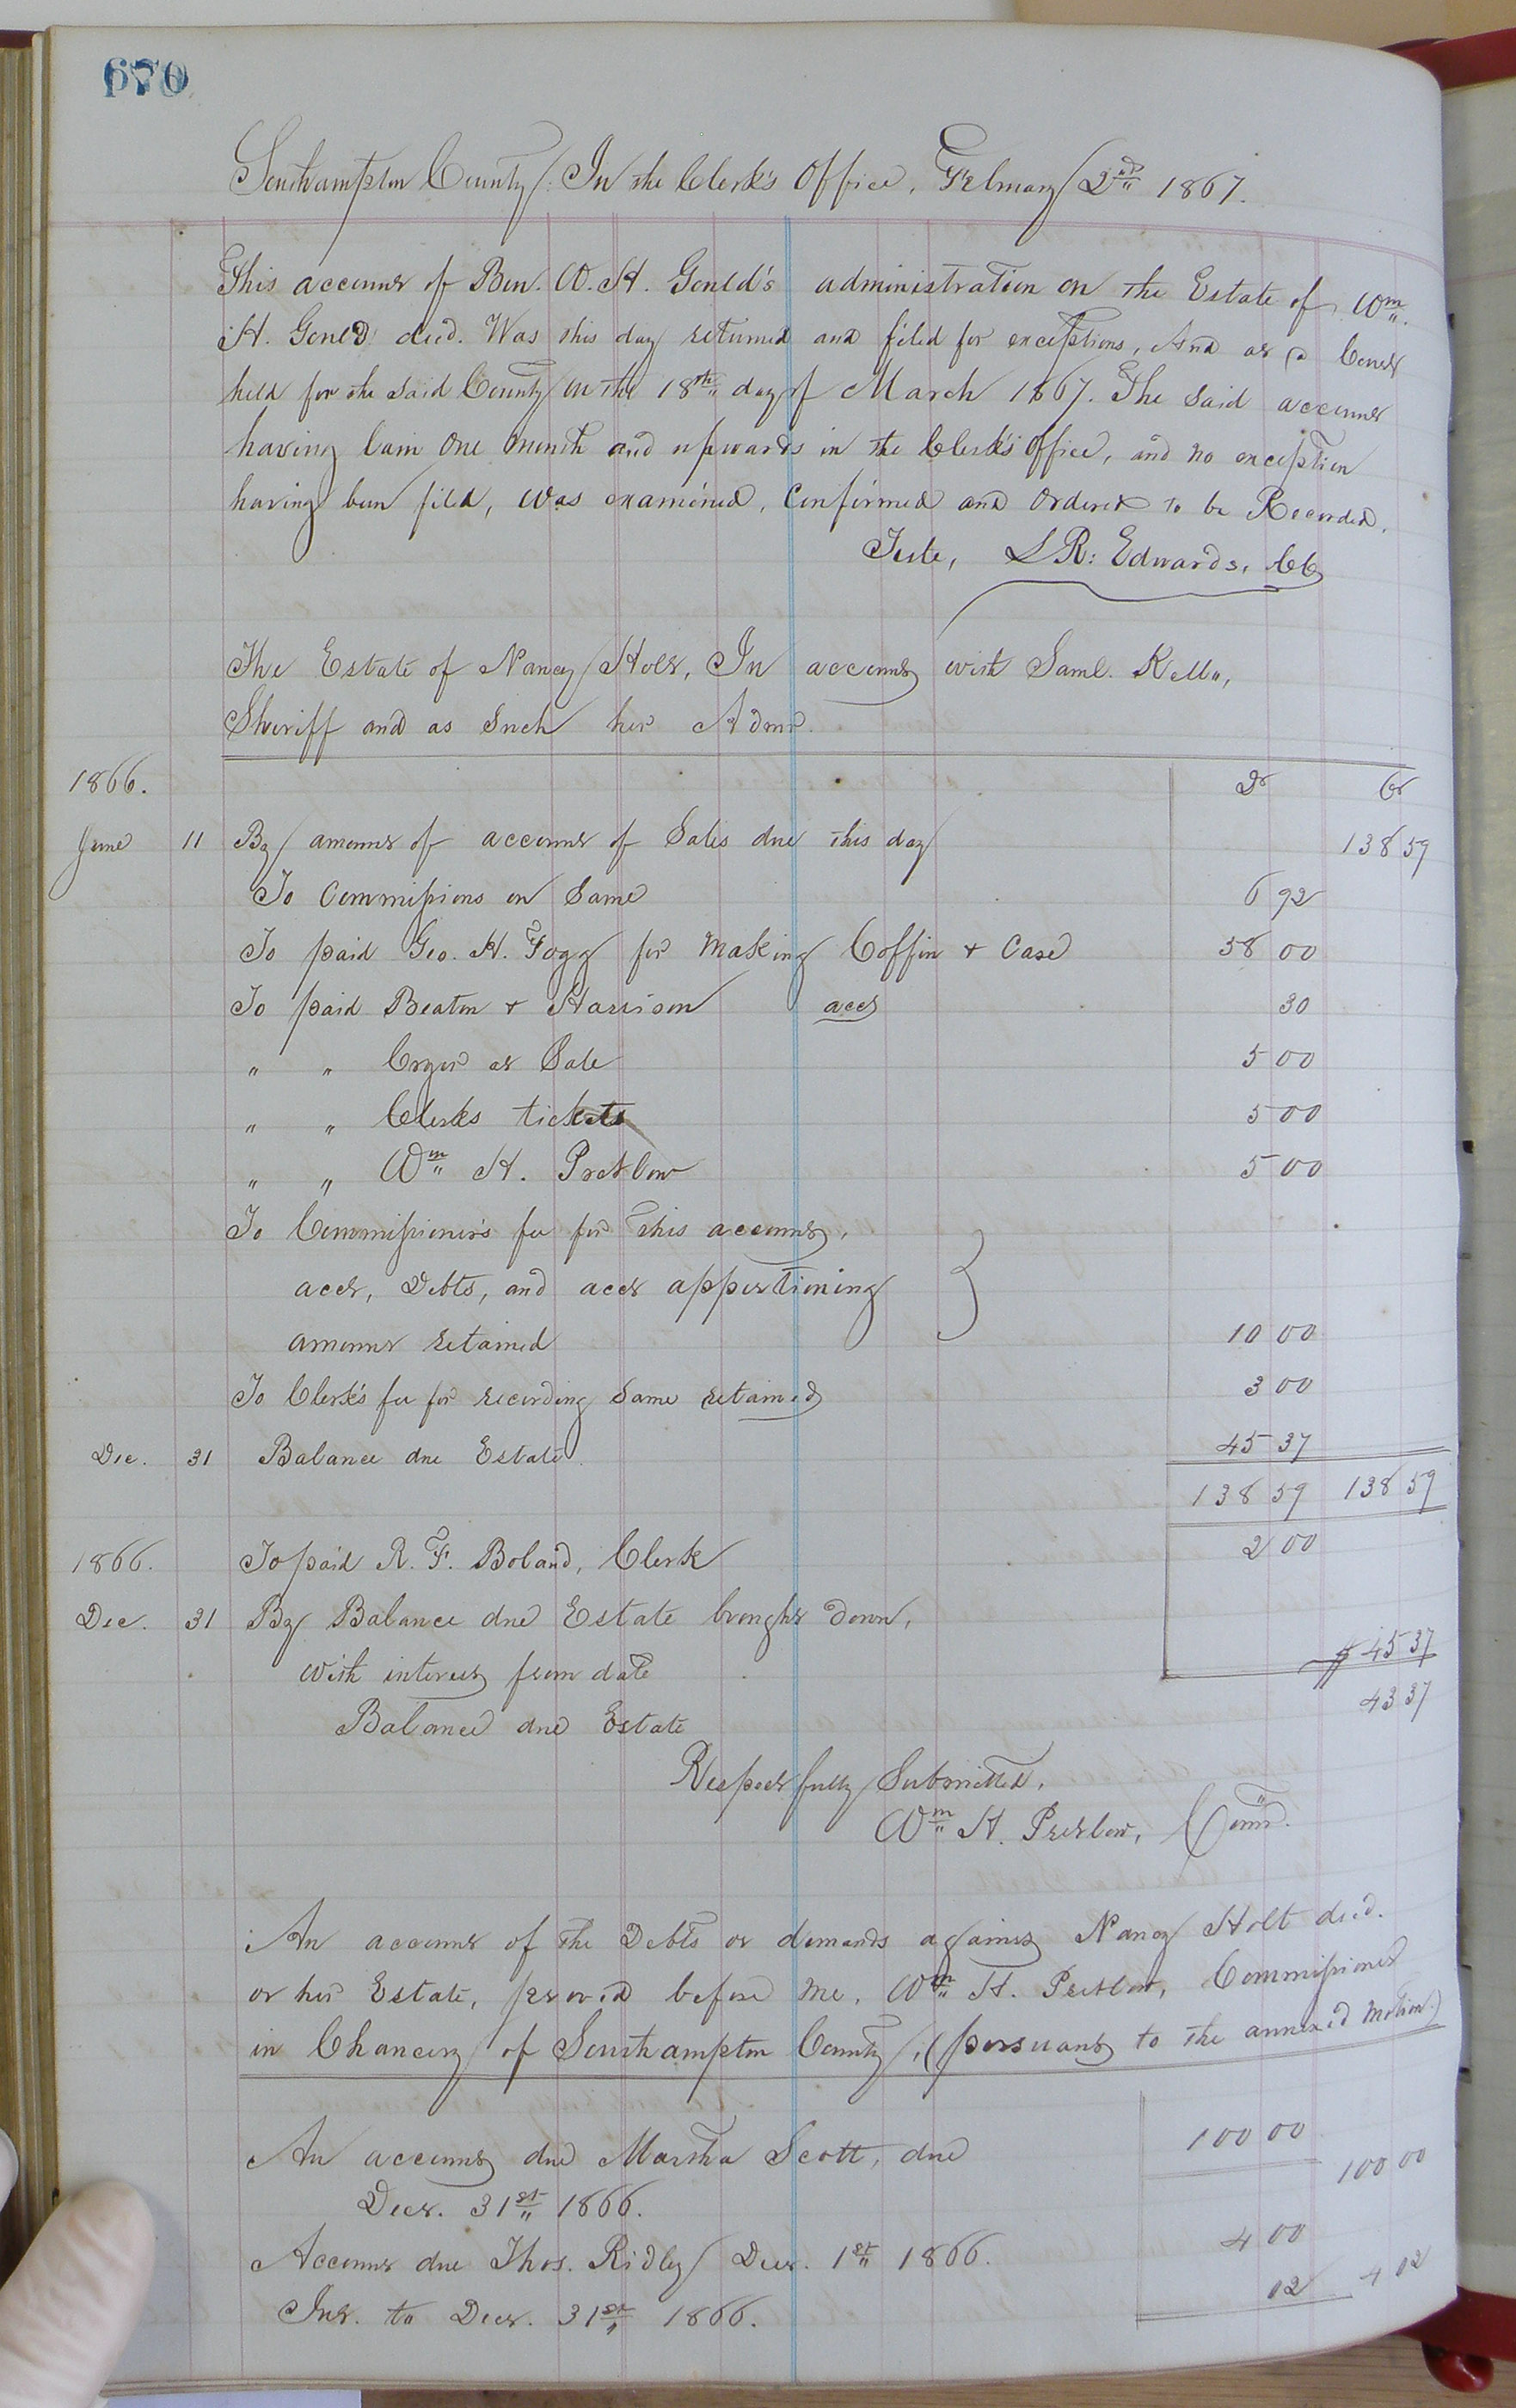 670
Southampton County: In the Clerk's Office, February 2nd 1867.
This account of Ben. W. H. Gould's administration on the Estate of Wm.
H. Gould decd. Was this day returned and filed for exceptions, And at a Court
held for the said County on the 18th day of March 1867. The said account
having lain one month and upwards in the Clerk's office, and no exception
having been filed, was examined, Confirmed and ordered to be Recorded.
Teste, L R: Edwards, CC
The Estate of Nancy Holt, In account with Saml. Kello,
Sheriff and as Such her Admr.
1866. Dr Cr
June 11 By amount of account of Sales due this day 138 59
To Commissions on Same 6 92
To paid Geo. H. Fogg for making Coffin + Case 58 00
To paid Beaton + Harrison acct 30
" " Cryer at Sale 5 00
" " Clerks tickets 5 00
" " Wm H. Pretlow 5 00
To Commissioner's fee for this account,
acct, Debts, and acct apportioning }
amount retained 10 00
To Clerk's fee for recording Same retained 3 00
Dec. 31 Balance due Estate 45 37
138 59 138 59
1866. To paid R. F. Boland, Clerk 2 00
Dec. 31 By Balance due Estate brought down,
with interest from date $ 45 37
Balance due Estate 43 37
Respectfully Submitted,
Wm H. Pretlow, Comr.
An account of the Debts or demands against Nancy Holt decd.
or her Estate, proved before me, Wm H. Pretlow, Commissioner
in Chancery of Southampton County, (pursuant to the annexed motion.)
An account due Martha Scott, due 100 00 100 00
Decr. 31st 1866.
Account due Thos. Ridley Decr. 1st 1866. 4 00
Int. to Decr. 31st 1866. 02 4 02